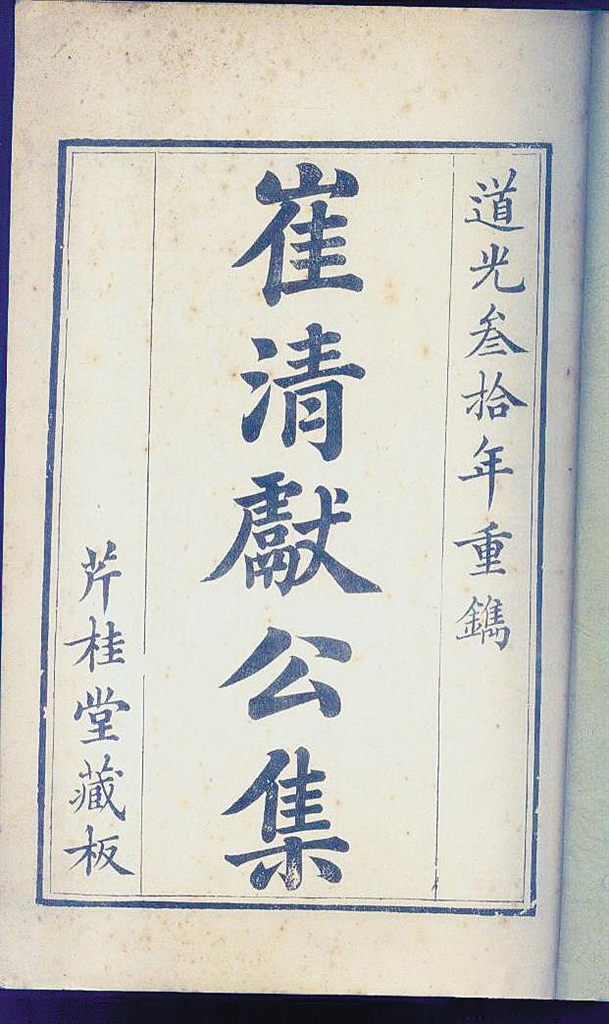 道光叁拾年重鐫
崔清獻公集
芹桂堂藏板